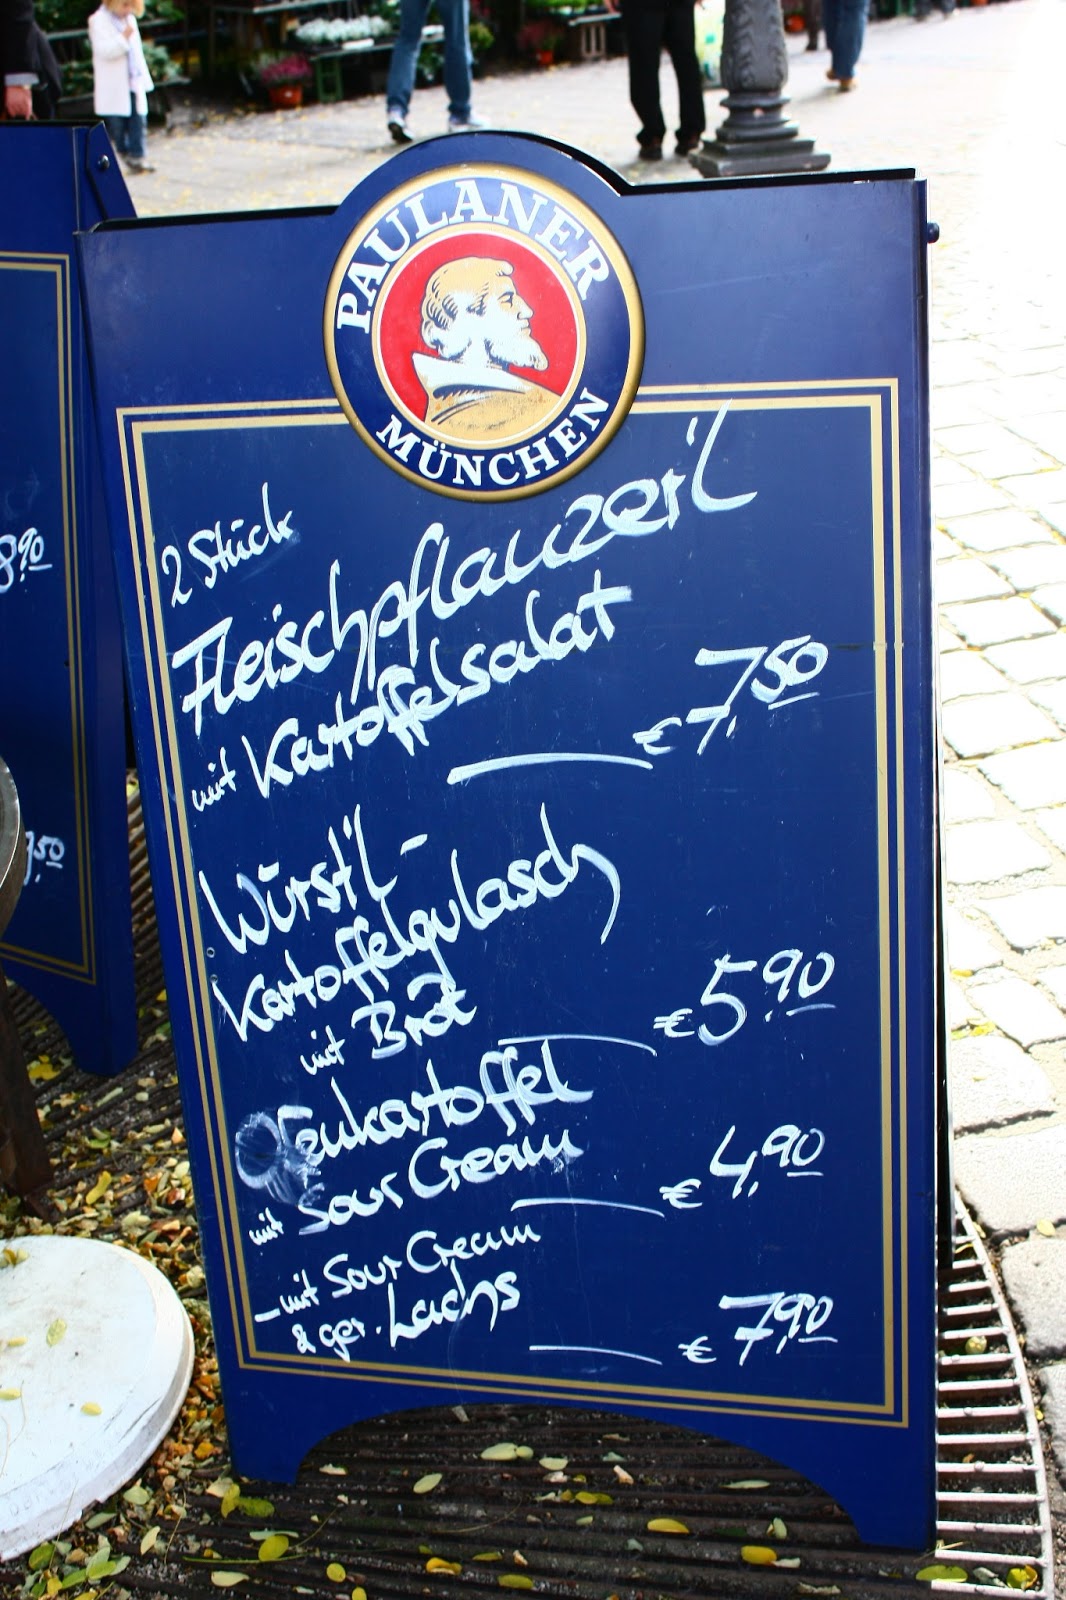 PAULANER
MÜNCHEN
2 Stück
Fleischpflanzerl
mit Kartoffelsalat
€ 7,50
Würstl-
Kartoffelgulasch
mit Brot
€ 5,90
Ofenkartoffel
mit Sour Cream
€ 4,90
- mit Sour Cream
& ger. Lachs
€ 7,90
8,90
,50